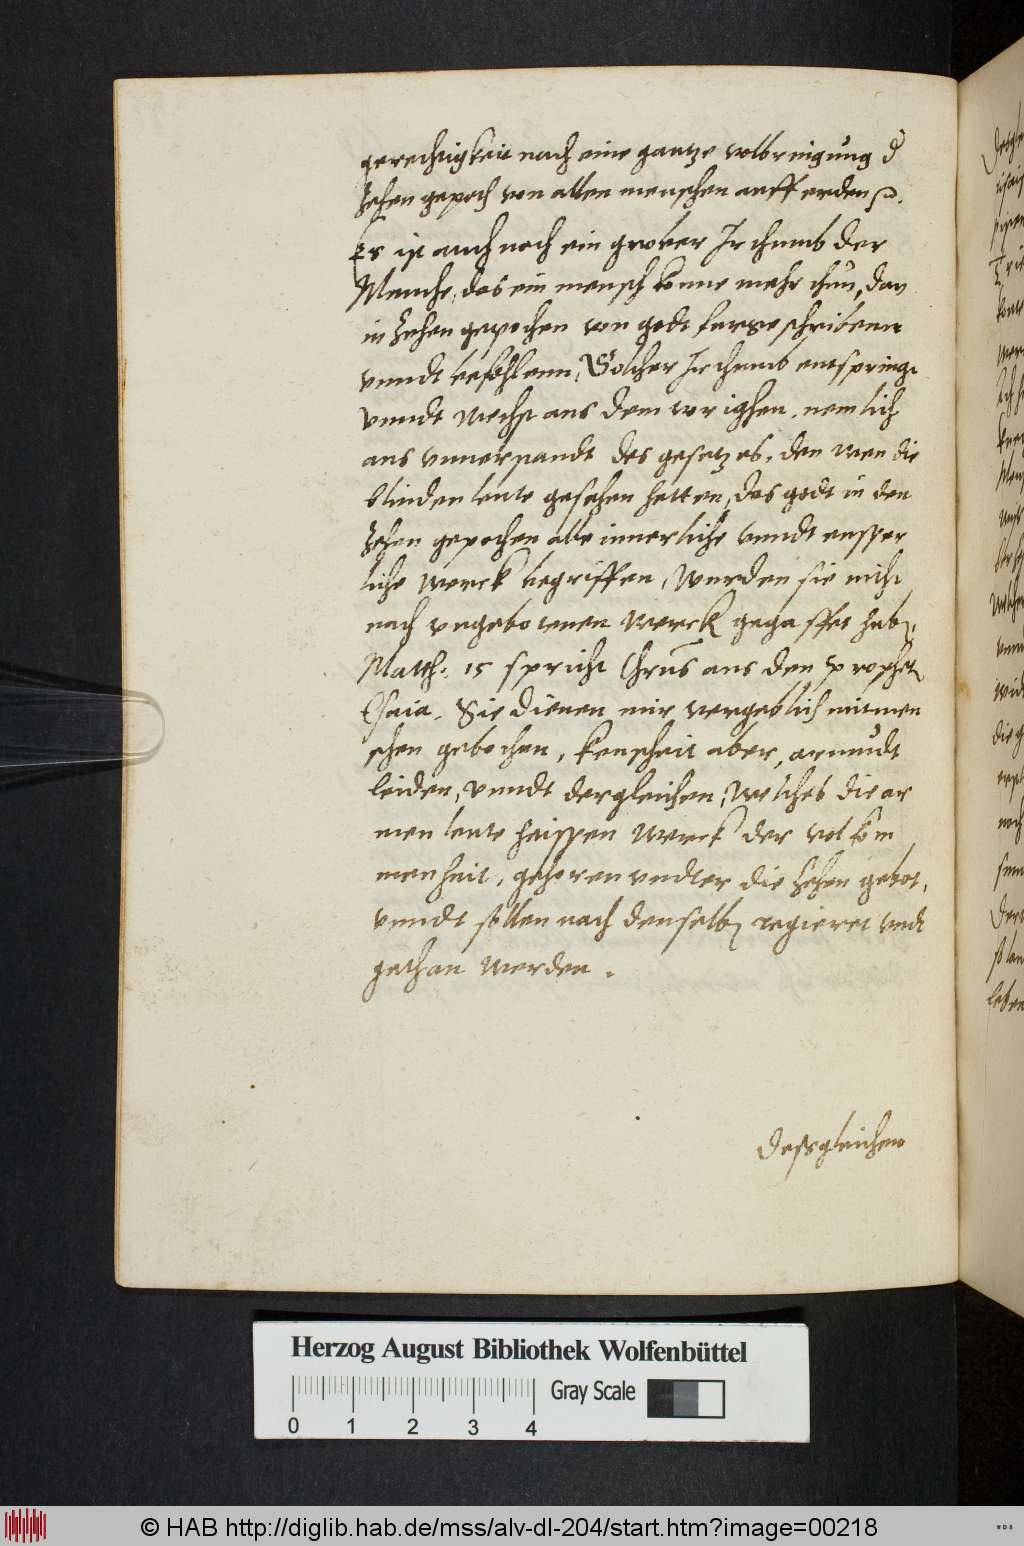 gerechtigkeit nach eine gantze volbreigung d
Zehen gepoth von allen menschen auff erden
Es ist auch noch ein grober Irthumb der
Munche, das ein mensch konne mehr thun, dan
in Zehen gepothen von godt furgeschribenn
vnndt befohlenn, Solcher Irthumb entspringt
vnndt wechst aus dem vorighen, nemlich
aus vnuerstandt des gesetzes, den wen die
blinden leute gesehen hetten, das godt in den
Zehen gepothen alle innerliche vnndt eusser
liche werck begriffen, wurden sie nicht
nach vngebotenen werck gegaffet hab
Matth. 15 spricht Chrus aus den Prophet
Esaia. Sie dienen mir vergeblich mit men
schen gebothen, keuscheit aber, armudt
leiden, vnndt dergleichen, welches die ar
men leute heissen werck der volkom
menheit, gehoren vndter die Zehen gebot,
vnndt sollen nach denselb regieret vndt
gethan werden.
Dessgleichen
Herzog August Bibliothek Wolfenbüttel
Gray Scale
0 1 2 3 4
© HAB http://diglib.hab.de/mss/alv-dl-204/start.htm?image=00218